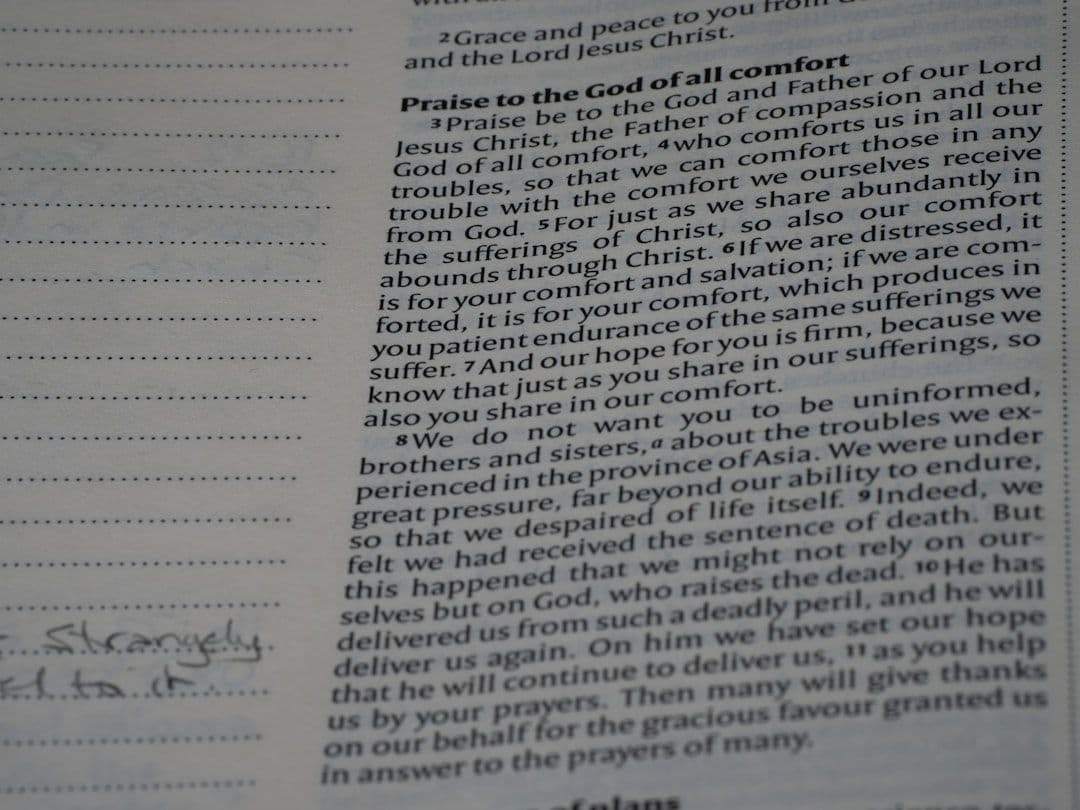 2 Grace and peace to you from
and the Lord Jesus Christ.
Praise to the God of all comfort
3 Praise be to the God and Father of our Lord
Jesus Christ, the Father of compassion and the
God of all comfort, 4 who comforts us in all our
troubles, so that we can comfort those in any
trouble with the comfort we ourselves receive
from God. 5 For just as we share abundantly in
the sufferings of Christ, so also our comfort
abounds through Christ. 6 If we are distressed, it
is for your comfort and salvation; if we are com-
forted, it is for your comfort, which produces in
you patient endurance of the same sufferings we
suffer. 7 And our hope for you is firm, because we
know that just as you share in our sufferings, so
also you share in our comfort.
8 We do not want you to be uninformed,
brothers and sisters, a about the troubles we ex-
perienced in the province of Asia. We were under
great pressure, far beyond our ability to endure,
so that we despaired of life itself. 9 Indeed, we
felt we had received the sentence of death. But
this happened that we might not rely on our-
selves but on God, who raises the dead. 10 He has
delivered us from such a deadly peril, and he will
deliver us again. On him we have set our hope
that he will continue to deliver us, 11 as you help
us by your prayers. Then many will give thanks
on our behalf for the gracious favour granted us
in answer to the prayers of many.
Strangely.
to it
plans